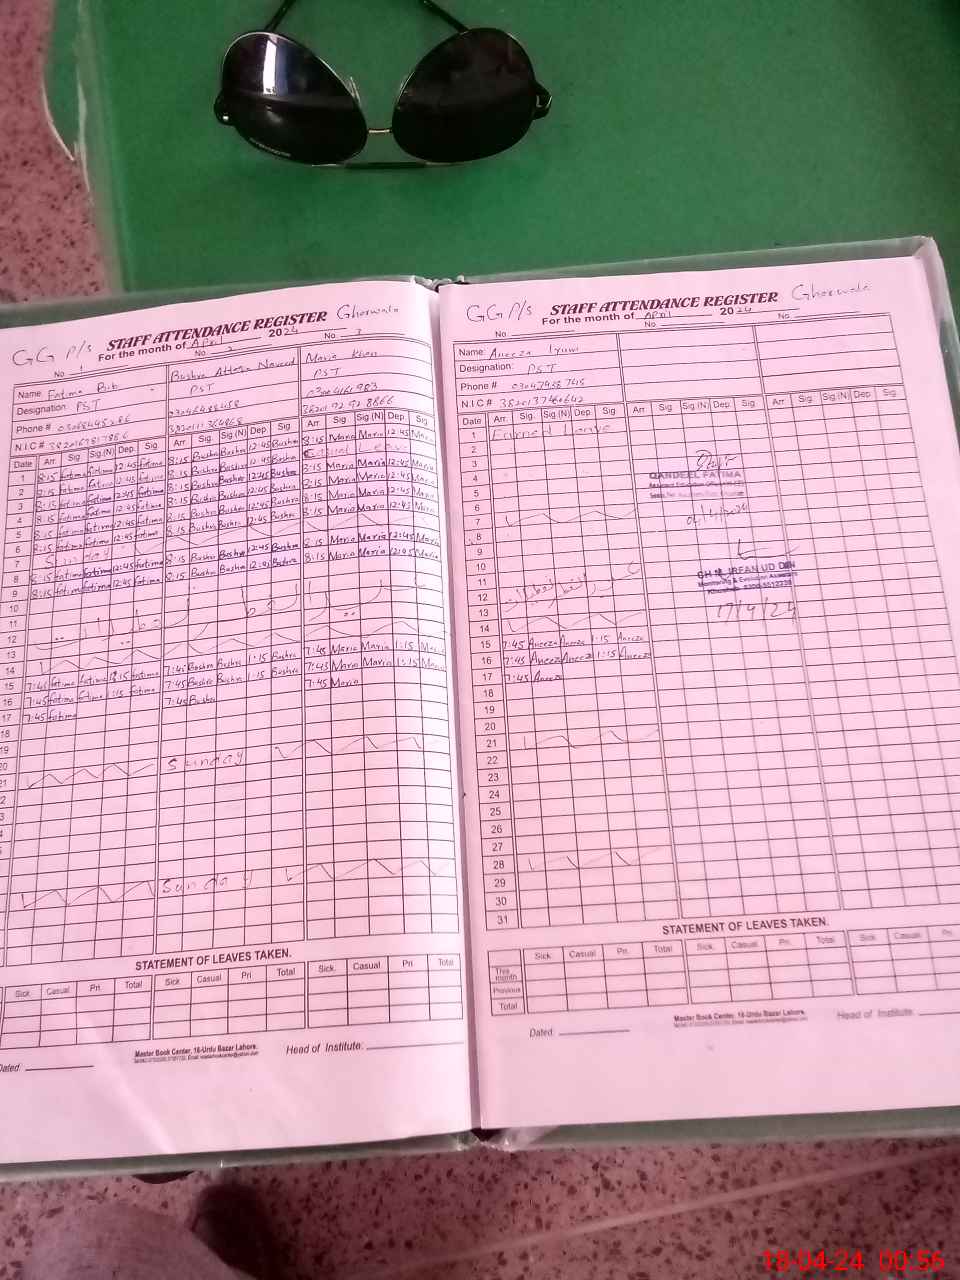 GG P/S STAFF ATTENDANCE REGISTER Ghorwala
For the month of April 2024
No. 1 No. 2 No. 3
Name: Fatima Bushra Naveed Maria Khan
Designation: PST PST PST
Phone #
N.I.C #
Date Arr. Sig. Sig.(N) Dep. Sig. Arr. Sig. Sig (N) Dep. Sig Arr. Sig. Sig.(N) Dep. Sig
1 8:15 fatima fatima 12:45 fatima 8:15 Bushra Bushra 12:45 Bushra 8:15 Maria Maria 12:45 Maria
2 8:15 fatima fatima 12:45 fatima 8:15 Bushra Bushra 12:45 Bushra Casual Leave
3 8:15 fatima fatima 12:45 fatima 8:15 Bushra Bushra 12:45 Bushra 8:15 Maria Maria 12:45 Maria
4 8:15 fatima fatima 12:45 fatima 8:15 Bushra Bushra 12:45 Bushra 8:15 Maria Maria 12:45 Maria
5 8:15 fatima fatima 12:45 fatima 8:15 Bushra Bushra 12:45 Bushra 8:15 Maria Maria 12:45 Maria
6 8:15 fatima fatima 12:45 fatima 8:15 Bushra Bushra 12:45 Bushra 8:15 Maria Maria 12:45 Maria
7 Sunday
8 8:15 fatima fatima 12:45 fatima 8:15 Bushra Bushra 12:45 Bushra 8:15 Maria Maria 12:45 Maria
9 8:15 fatima fatima 12:45 fatima 8:15 Bushra Bushra 12:45 Bushra 8:15 Maria Maria 12:45 Maria
10
11
12
13
14
15 7:45 fatima fatima fatima 7:45 Bushra Bushra 1:15 Bushra 7:45 Maria Maria 1:15 Maria
16 7:45 fatima fatima 1:15 fatima 7:45 Bushra Bushra 1:15 Bushra 7:45 Maria Maria 1:15 Maria
17 7:45 fatima 7:45 Bushra 7:45 Maria
18
19
20
21 Sunday
Sunday
STATEMENT OF LEAVES TAKEN.
Sick Casual Pri. Total Sick. Casual Pri. Total Sick. Casual Pri. Total
Dated: Master Book Center, 16-Urdu Bazar Lahore. Head of Institute:
GG P/S STAFF ATTENDANCE REGISTER Ghorwala
For the month of April 2024
No. No. No.
Name: Aneeza
Designation: PST
Phone # 03047458745
N.I.C #
Date Arr. Sig. Sig.(N) Dep. Sig. Arr. Sig Sig (N) Dep. Sig Arr. Sig. Sig.(N) Dep. Sig
1 Earned Leave
2
3
4 QANDEEL FATIMA
5
6
7
8
9
10
11 CH M. IRFAN UD DIN
Monitoring & Evaluation Assistant
12
13 17/4/24
14
15 7:45 Aneeza Aneeza 1:15 Aneeza
16 7:45 Aneeza Aneeza 1:15 Aneeza
17 7:45 Aneeza
18
19
20
21
22
23
24
25
26
27
28
29
30
31
STATEMENT OF LEAVES TAKEN.
Sick. Casual Pri. Total Sick. Casual Pri. Total Sick. Casual Pri.
This month
Previous
Total
Dated: Master Book Center, 16-Urdu Bazar Lahore. Head of Institute:
18-04-24 00:56